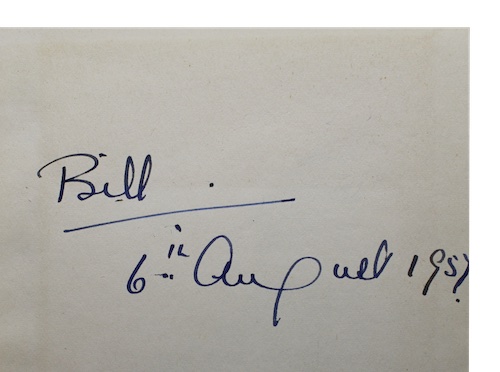 Bill .
6th August 1957.